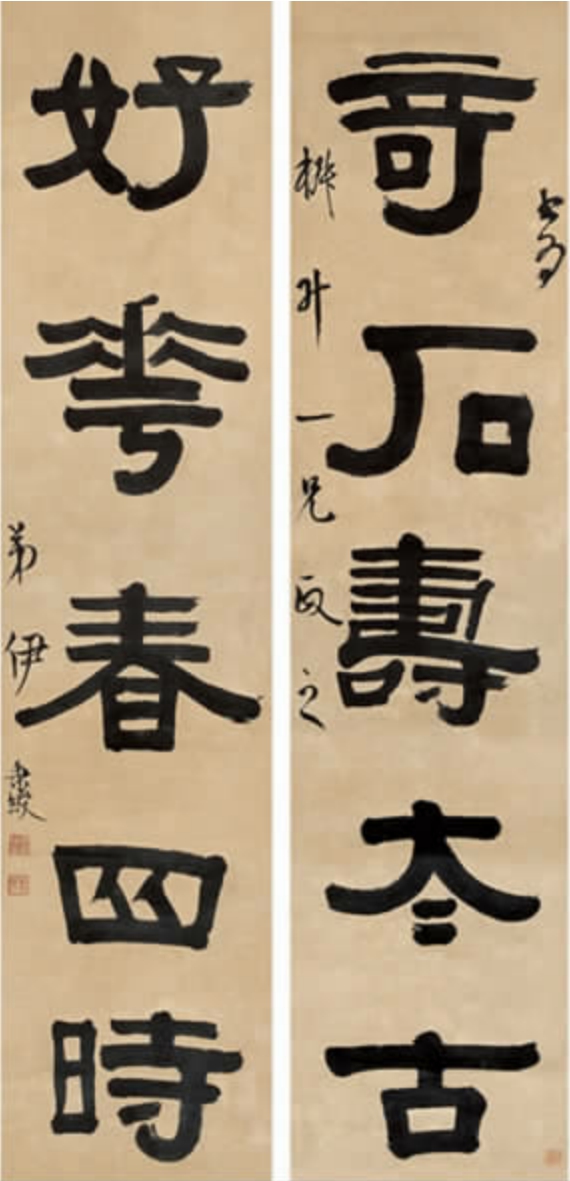 書為
奇石壽太古
升一兄政之
好花春四時
弟伊秉綬